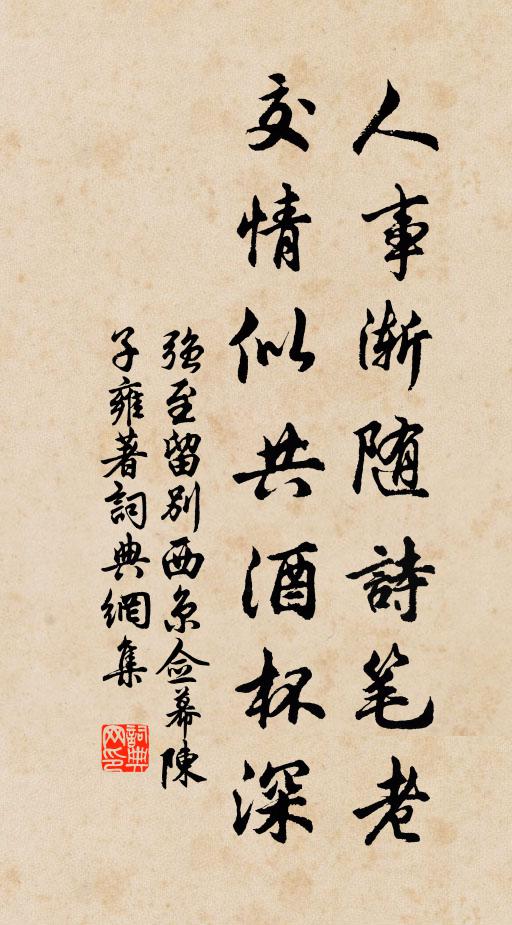 人事渐随詩笔老
交情似共酒杯深
强至留别西京佥幕陳
子雍著詞典網集
詞典网印